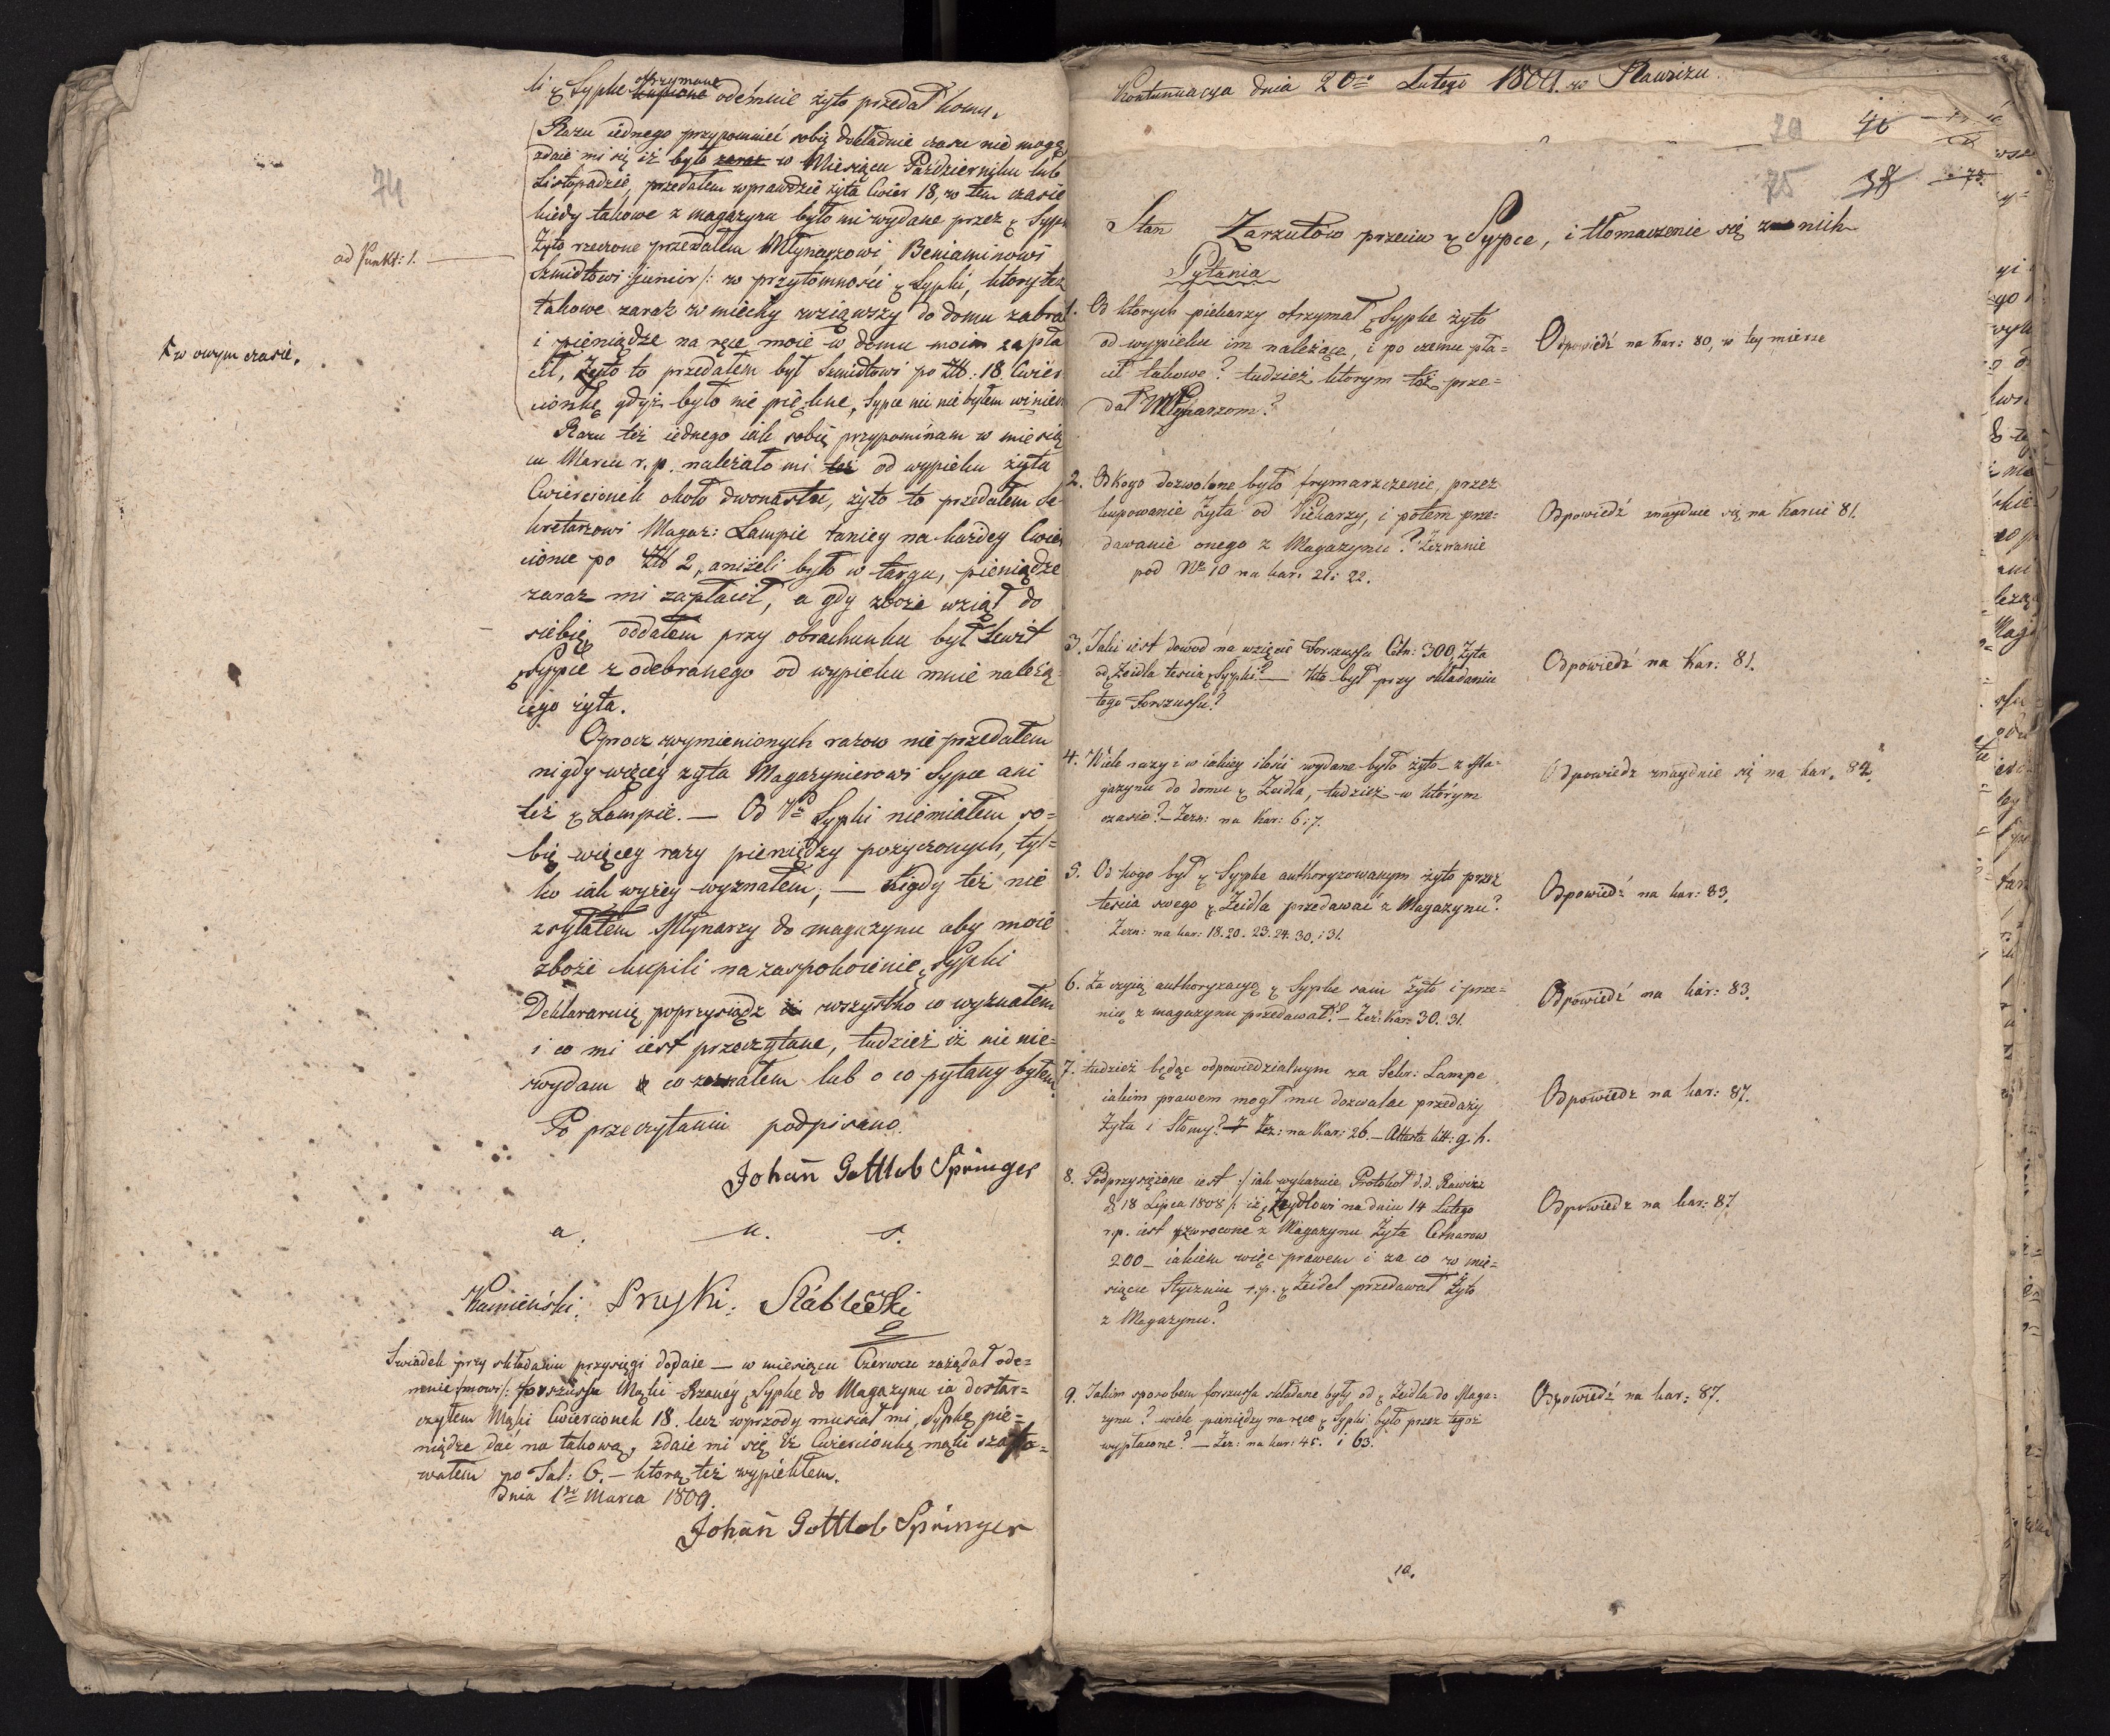 li z Sypke otrzymane kupione odemnie żyto przedał komu.
74
Razu iednego przypomnieć sobię dokładnie czasu nie mogę,
zdaie mi się iż było zaraz w Miesiącu Październiku lub
Listopadzie, przedałem wprawdzie żyta Cwier 18, w tem czasie
kiedy takowe z magazynu było mi wydane przez z Syp
od Punkt: 1.
Żyto rzeczone przedałem Młynarzowi Beniaminowi
Szmidtowi :/junior/: w przytomności z Sypki, ktory też
takowe zaraz w miechy wziąwszy do domu zabra
w owym czasie,
i pieniądze na ręce moie w domu moim zapła
cił, Żyto to przedałem był Szmidtowi po Złt: 18. Cwier
cionkę gdyż było nie piękne, Sypce nic nie byłem winien
Razu też iednego iak sobię przypominam w miesią
cu Marcu r. p. należało mi też od wypieku żyta
Cwiercionek około dwonastu, żyto to przedałem Se
kretarzowi Magaz: Lampie taniey na każdey Cwier
cionie po Złt 2, aniżeli było w targu, pieniądze
zaraz mi zapłacił, a gdy zboże wziął do
siebię, oddałem przy obrachunku był kwit
z Sypce z odebranego od wypieku mnie należą
cego żyta.
Oprocz wymienionych razow nie przedałem
nigdy więcéy żyta Magazynierowi Sypce ani
też z Lampie. — Od Pa Sypki niemiałem so=
bię więcey razy pieniędzy pożyczonych, tyl=
ko iak wyżey wyznałem; — Nigdy też nie
zsyłałem Młynarzy do magazynu aby moie
zboże kupili na zaspokoienie z Sypki
Deklararuię poprzysiądz iż wszystko co wyznałem
i co mi iest przeczytane, tudzież iż nie nie=
wydam co zeznałem lub o co pytany byłem.
Po przeczytaniu podpisano.
Johan̄ Gottlob Springer
a. u. s.
Kamieński. Pruski. Stablewski
Swiadek przy składaniu przysięgi dodaie — w miesiącu Czerwcu zażądał ode=
mnie /:mowi/: forszussu Mąki Rżanéy z Sypke do Magazynu ia dostar=
czyłem Mąki Cwiercionek 18. lecz wprzody musiał mi z Sypkę pie=
niądze dać na takową, zdaie mi się iż Cwiercionkę mąki szaco=
wałem po Tal: 6. — ktorą też wypiekłem.
Dnia 1go Marca 1809.
Johan̄ Gottlob Springer
Kontunuacya dnia 20go Lutego 1809. w Rawiczu.
70 40
75 38 73.
Stan Zarzutow przeciw z Sypce, i tłomaczenie się z nich
Pytania
1. Od ktorych piekarzy otrzymał z Sypke żyto
od wypieku im należące, i po czemu pła=
cił takowe? tudzież ktorym toż prze=
dał Młynarzom?
Odpowiedź na Kar: 80, w tey mierze
2. Od kogo dozwolone było frymarczenie, przez
kupowanie Żyta od Piekarzy, i potem prze=
dawanie onego z Magazynu? Zeznanie
pod No 10 na kar: 21: 22.
Odpowiedź znayduie się na Karcie 81.
3. Jaki iest dowod na wzięcie Forszussu Cetn: 300, Żyta
od z Zeidla teścia z Sypki? — Kto był przy składaniu
tego Forszussu?
Odpowiedź na Kar: 81.
4. Wiele razy i w iakiey ilości wydane było żyto z Ma=
gazynu do domu z Zeidla, tudzież w którym
czasie? — Zezn: na Kar: 6 i 7.
Odpowiedz znaydnie się na kar. 82.
5. Od kogo był z Sypke authoryzowanym żyto przez
teścia swego z Zeidla przedawać z Magazynu?
Zezn: na kar: 18. 20. 23. 24. 30. i 31.
Odpowiedź na kar: 83.
6. Za czyią authoryzacyą z Sypke sam żyto i psze=
nicę z magazynu przedawał? — Zez: Kar: 30. 31.
Odpowiedź na kar: 83.
7. tudzież będąc odpowiedzialnym za Sekr: Lampe
iakim prawem mogł mu dozwalac przedaży
Żyta i Słomy? Zez: na Kar: 26. — Attesta litt: g. h.
Odpowiedz na kar: 87.
8. Podprzysiężone iest :/ iak wykazuie Protokoł d. d. Rawicz
d. 18 Lipca 1808 /: iż z Zeydlowi na dniu 14 Lutego
r. p. iest zwrocone z Magazynu Żyta Cetnarow
200 — iakiem więc prawem i za co w mie=
siącu Styczniu r. p. z Zeidel przedawał Żyto
z Magazynu?
Odpowiedz na kar: 87
9. Jakim sposobem forszussa składane były od z Zeidla do Maga=
zynu? wiele pieniędzy na ręce z Sypki było przez tegoż
wypłacone? — Zez: na kar: 45. i 63.
Odpowiedź na kar: 87.
10.